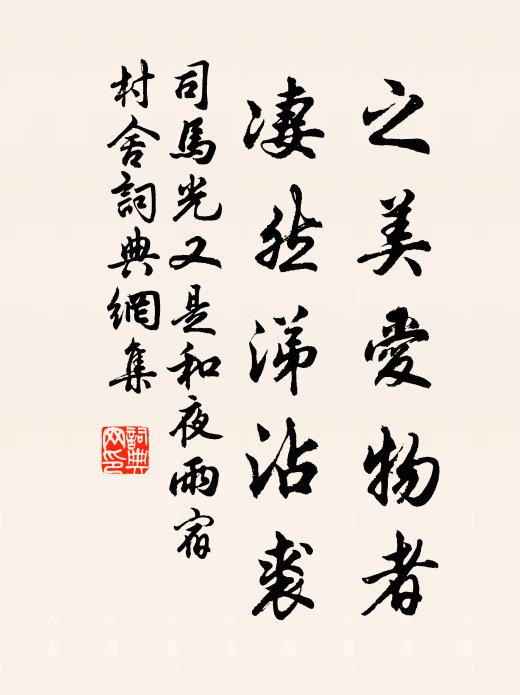 之美愛物者
淒然涕沾裘
司馬光又是和夜雨宿
村舍詞典網集
詞典
网印